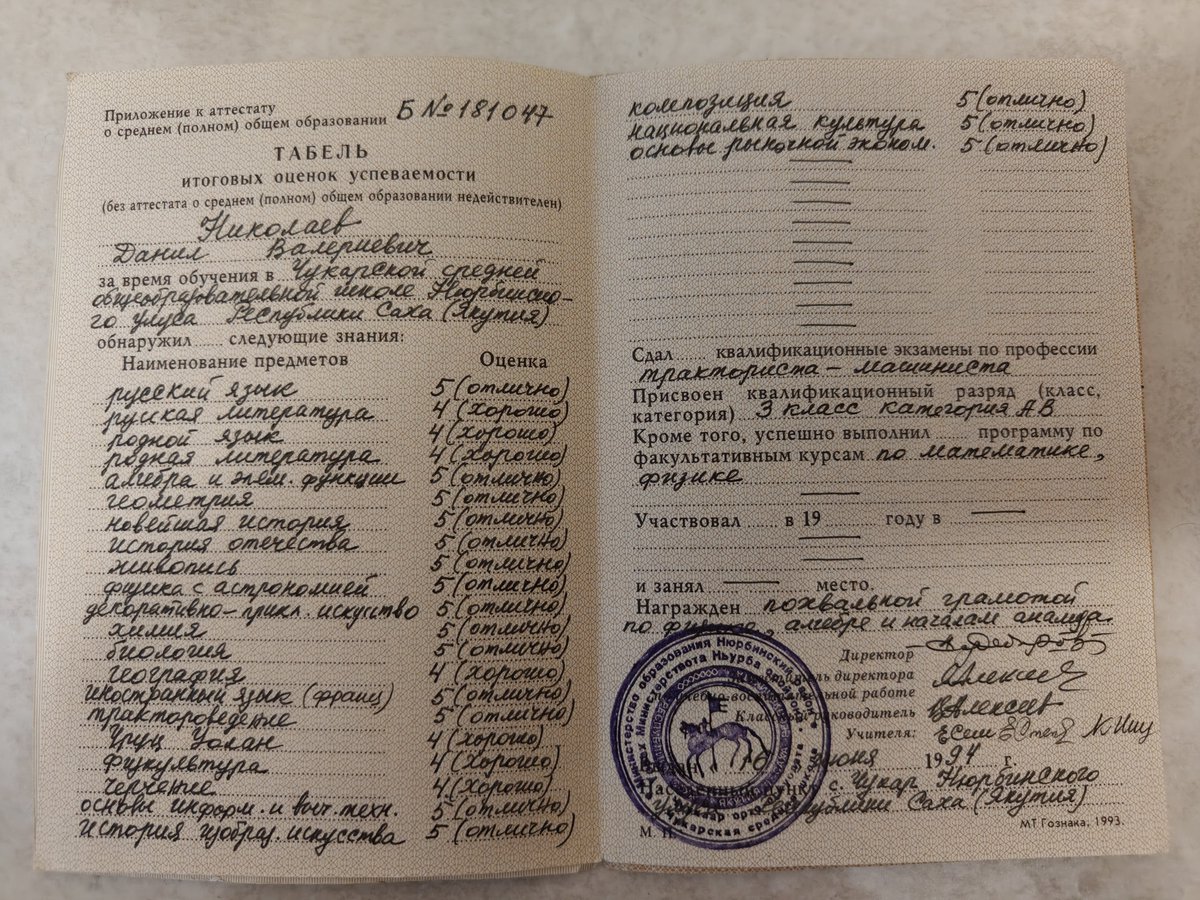 Приложение к аттестату
о среднем (полном) общем образовании Б № 181047
ТАБЕЛЬ
итоговых оценок успеваемости
(без аттестата о среднем (полном) общем образовании недействителен)
Николаев
Данил Валериевич
за время обучения в Чукарской средней
общеобразовательной школе Нюрбинско-
го улуса Республики Саха (Якутия)
обнаружил ...... следующие знания:
Наименование предметов Оценка
русский язык 5 (отлично)
руская литература 4 (хорошо)
родной язык 4 (хорошо)
родная литература 4 (хорошо)
алгебра и элем. функции 5 (отлично)
геометрия 5 (отлично)
новейшая история 5 (отлично)
история отечества 5 (отлично)
живопись 5 (отлично)
физика с астрономией 5 (отлично)
декоративно-прикл. искусство 5 (отлично)
химия 5 (отлично)
биология 5 (отлично)
география 4 (хорошо)
иностранный язык (франц) 5 (отлично)
трактороведение 5 (отлично)
4 (хорошо)
физкультура 4 (хорошо)
черчение 4 (хорошо)
основы информ. и выч. техн. 5 (отлично)
история изобраз. искусства 5 (отлично)
композиция 5 (отлично)
национальная культура 5 (отлично)
основы рыночной эконом. 5 (отлично)
Сдал ...... квалификационные экзамены по профессии
тракториста - машиниста
Присвоен квалификационный разряд (класс,
категория) 3 класс категория АВ
Кроме того, успешно выполнил ...... программу по
факультативным курсам по математике,
физике
Участвовал ...... в 19 году в
и занял место.
Награжден похвальной грамотой
по физике, алгебре и началам анализа.
Директор
директора
работе
Классный руководитель Алексеев
Учителя:
июня 1994 г.
Населенный пункт с. Чукар Нюрбинского
Республики Саха (Якутия)
М. П.
МТ Гознака, 1993.
Министерство образования Нюрбинский
Чукарская средняя